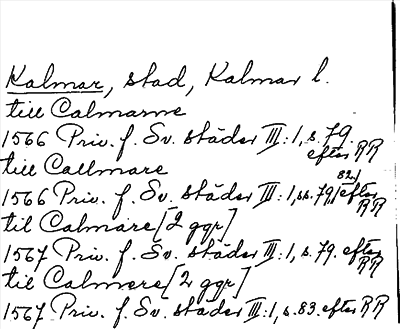 Kalmar, stad, Kalmar l.
till Calmarne
1566 Priv. f. Sv. städer III:1, s. 79
efter RR
till Callmare
1566 Priv. f. Sv. städer III:1, ss. 79, 82, efter
RR
til Calmare [2 ggr]
1567 Priv. f. Sv. städer III:1, s. 79. efter
RR
til Calmere [2 ggr]
1567 Priv. f. Sv. städer III:1, s. 83. efter RR